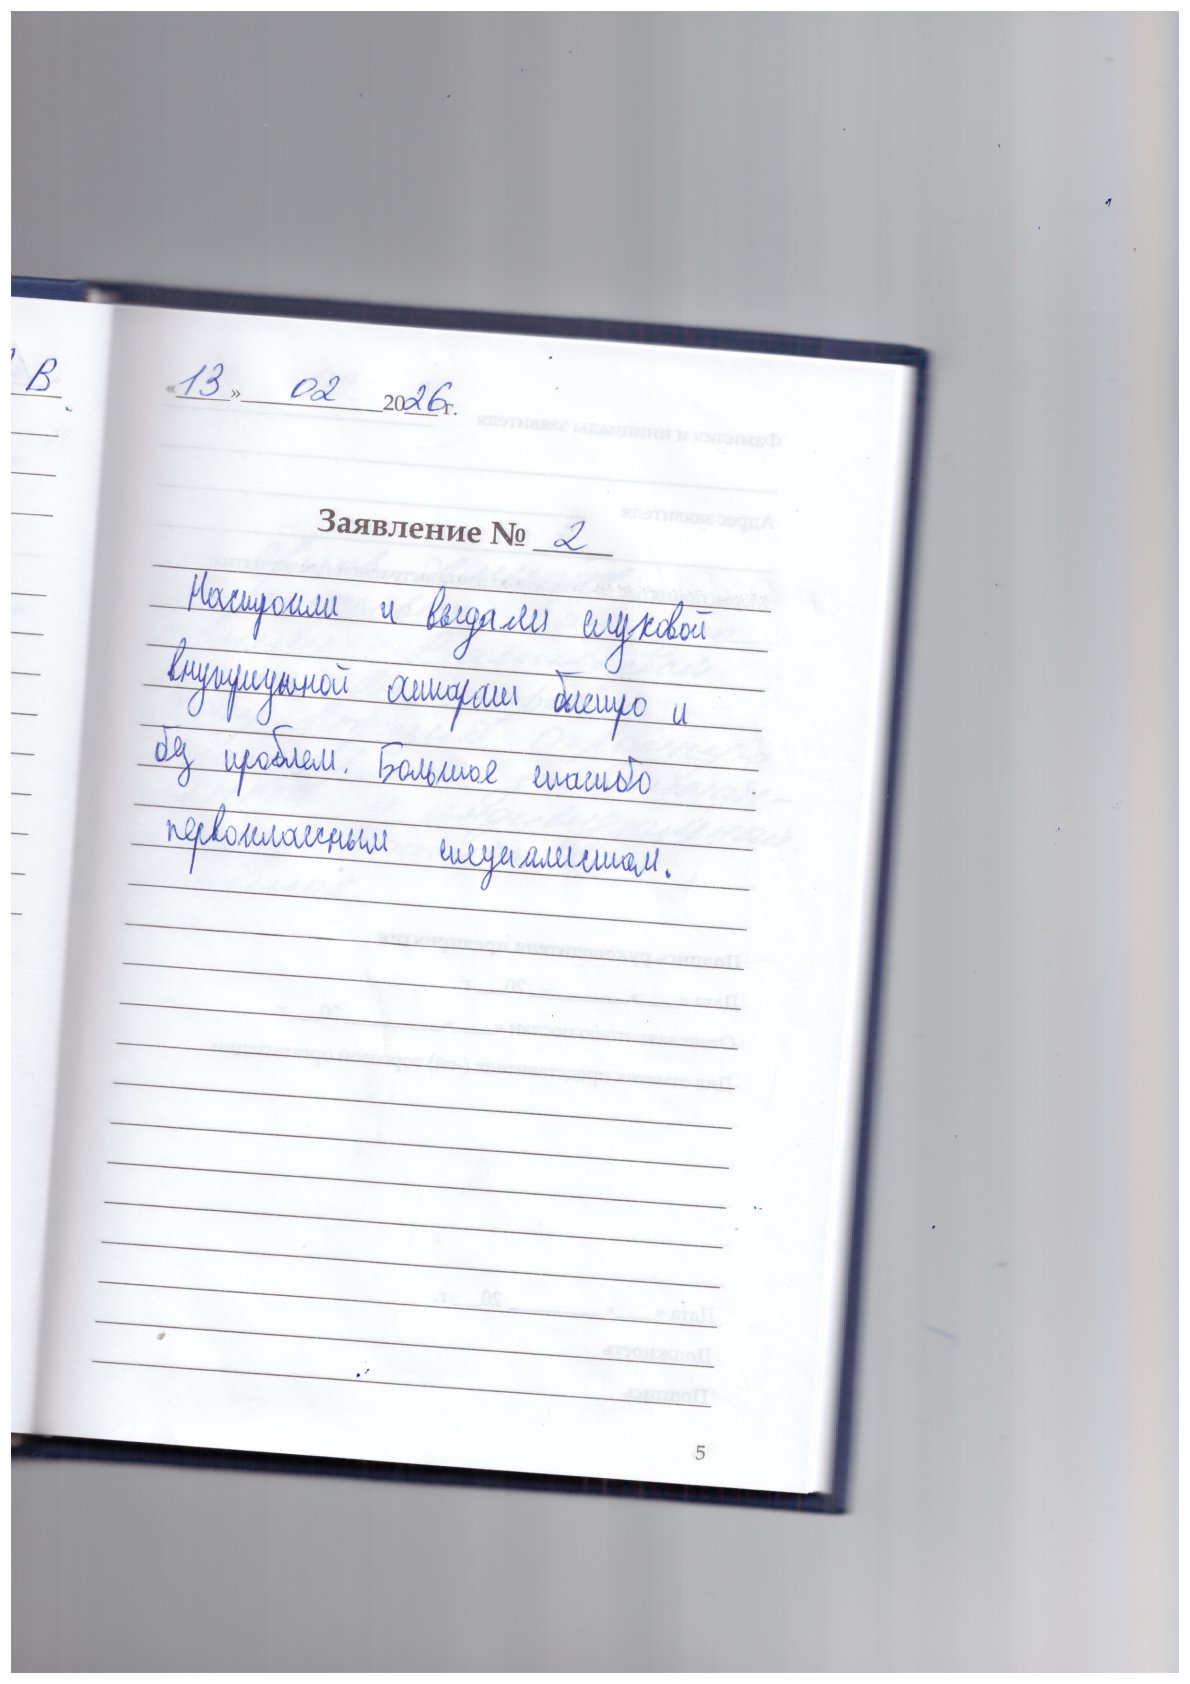 В
«13» 02 2026 г.
Заявление № 2
Настроили и выдали слуховой
внутриушной аппарат быстро и
без проблем. Большое спасибо
первоклассным специалистам.
5